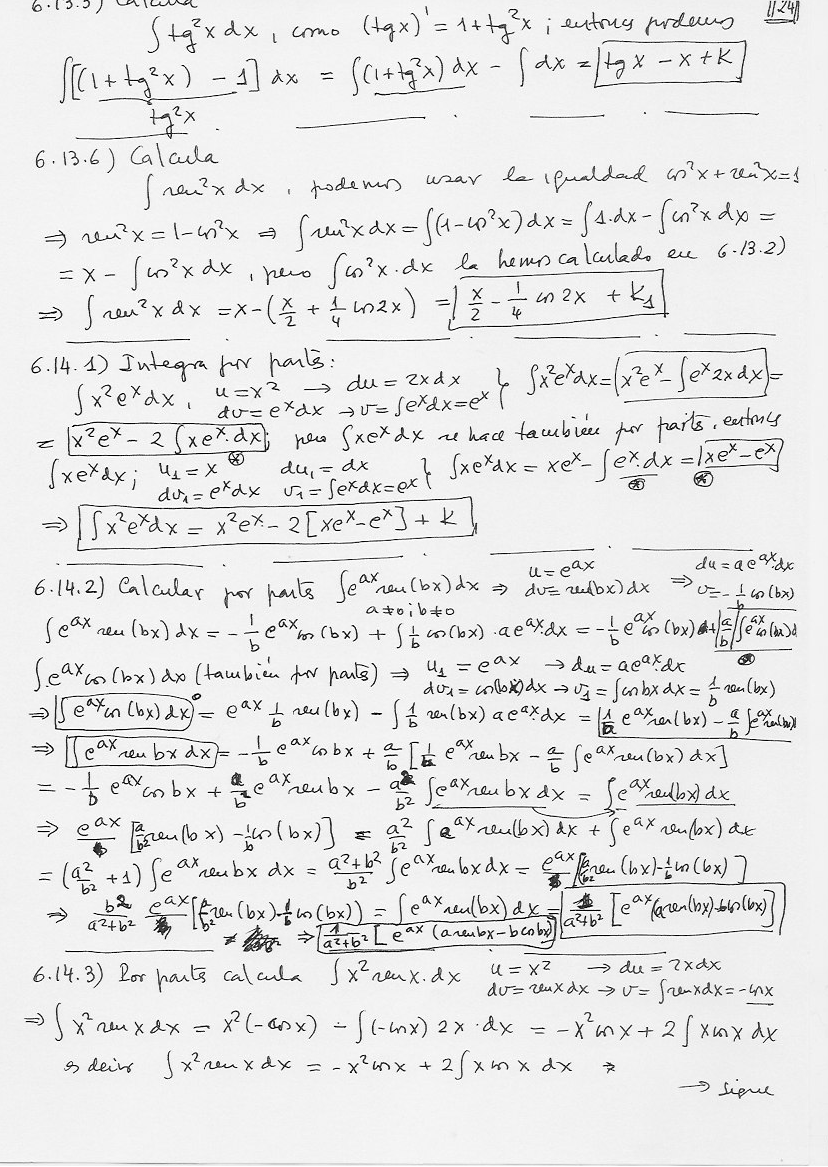 6.13.5) Calcula
1124
∫tg²x dx, como (tgx)' = 1+tg²x ; entonces podemos
∫[(1+tg²x) − 1] dx = ∫(1+tg²x) dx − ∫dx = tgx − x + K
tg²x
6.13.6) Calcula
∫sen²x dx, podemos usar la igualdad cos²x + sen²x = 1
⇒ sen²x = 1−cos²x ⇒ ∫sen²x dx = ∫(1−cos²x) dx = ∫1·dx − ∫cos²x dx =
= x − ∫cos²x dx, pero ∫cos²x·dx la hemos calculado en 6.13.2)
⇒ ∫sen²x dx = x − (x/2 + 1/4 cos2x) = x/2 − 1/4 cos2x + K₁
6.14.1) Integra por partes:
∫x²eˣdx, u=x² → du = 2xdx } ∫x²eˣdx = x²eˣ − ∫eˣ2xdx =
dv=eˣdx → v=∫eˣdx=eˣ
= x²eˣ − 2∫xeˣ·dx ; pero ∫xeˣdx se hace también por partes, entonces
∫xeˣdx; u₁=x du₁=dx } ∫xeˣdx = xeˣ − ∫eˣ·dx = xeˣ−eˣ
dv₁=eˣdx v₁=∫eˣdx=eˣ
⇒ ∫x²eˣdx = x²eˣ − 2[xeˣ−eˣ] + K
6.14.2) Calcular por partes ∫e^{ax}sen(bx)dx ⇒ u=e^{ax} dv=sen(bx)dx ⇒ du=ae^{ax}·dx v=−1/b cos(bx)
a≠0; b≠0
∫e^{ax}sen(bx)dx = −1/b e^{ax}cos(bx) + ∫1/b cos(bx)·ae^{ax}·dx = −1/b e^{ax}cos(bx) + a/b ∫e^{ax}cos(bx)d
∫e^{ax}cos(bx)dx (también por partes) ⇒ u₁=e^{ax} → du=ae^{ax}dx
dv₁=cos(bx)dx → v₁=∫cosbxdx=1/b sen(bx)
⇒ ∫e^{ax}cos(bx)dx = e^{ax} 1/b sen(bx) − ∫1/b sen(bx) ae^{ax}·dx = 1/b e^{ax}sen(bx) − a/b ∫e^{ax}sen(bx)
⇒ ∫e^{ax}senbx dx = −1/b e^{ax}cosbx + a/b [1/b e^{ax}senbx − a/b ∫e^{ax}sen(bx)dx]
= −1/b e^{ax}cosbx + a/b² e^{ax}senbx − a²/b² ∫e^{ax}senbxdx = ∫e^{ax}sen(bx)dx
⇒ e^{ax} [a/b² sen(bx) − 1/b cos(bx)] = a²/b² ∫e^{ax}sen(bx)dx + ∫e^{ax}sen(bx)dx
= (a²/b² + 1)∫e^{ax}senbx dx = (a²+b²)/b² ∫e^{ax}senbxdx = e^{ax}[a/b² sen(bx) − 1/b cos(bx)]
⇒ b²/(a²+b²) e^{ax}[a/b² sen(bx) − 1/b cos(bx)] = ∫e^{ax}sen(bx)dx = 1/(a²+b²) [e^{ax}(asen(bx)−bcos(bx)]
⇒ 1/(a²+b²) [e^{ax}(asenbx−bcosbx)]
6.14.3) Por partes calcula ∫x²senx·dx u=x² → du=2xdx
dv=senxdx → v=∫senxdx=−cosx
⇒ ∫x²senxdx = x²(−cosx) − ∫(−cosx) 2x·dx = −x²cosx + 2∫xcosx dx
es decir ∫x²senxdx = −x²cosx + 2∫xcosx dx ⇒
→ sigue